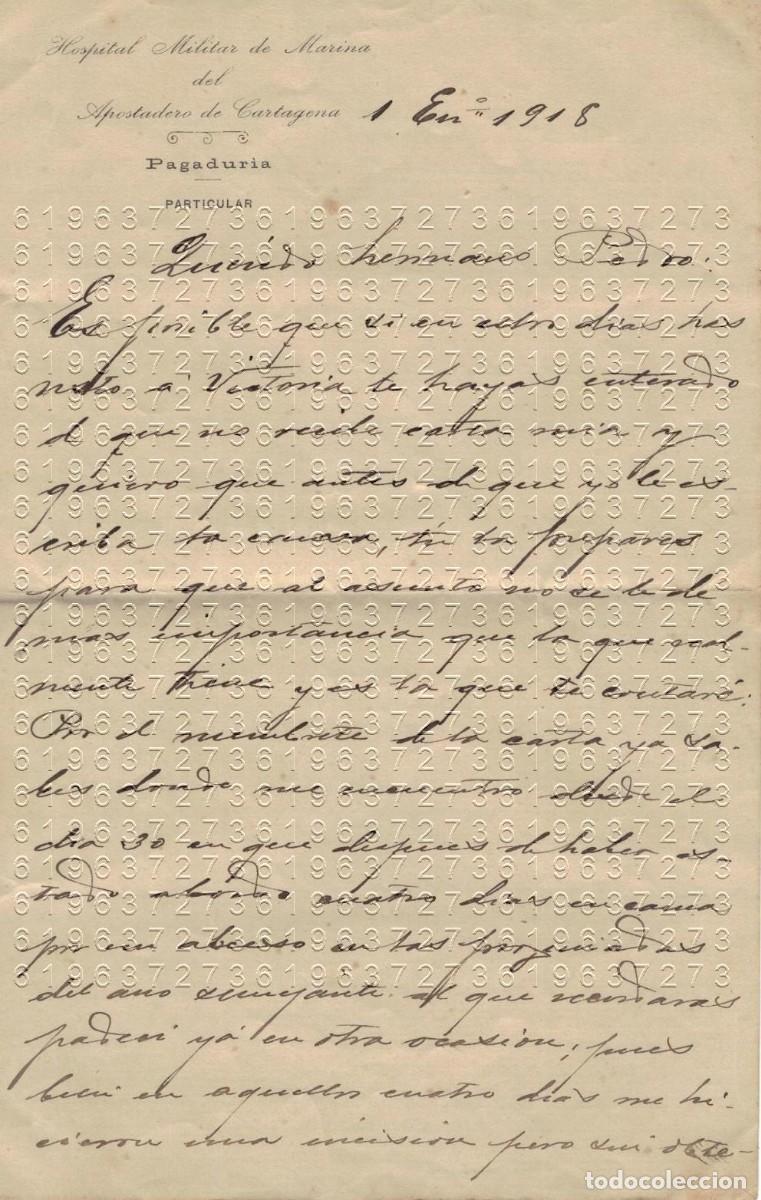 Hospital Militar de Marina
del
Apostadero de Cartagena
1 En.º 1918
Pagaduria
PARTICULAR
Querido hermano Pedro:
Es posible que si en estos dias has
visto á Victoria te hayas enterado
de que no recibe carta mia y
quiero que antes de que yo le es-
criba la causa, tu la prepares
para que al asunto no se le de
mas importáncia que la que real-
mente tiene y es la que te contaré:
Por el membrete de la carta ya sa-
bes donde me encuentro desde el
dia 30 en que despues de haber es-
tado abordo cuatro dias en cama
por un abceso en las
del ano semejante al que recordarás
padeci yá en otra ocasión; pues
bien en aquellos cuatro dias me hi-
cieron una incision pero sin obte-
61963727361963727361963727361963727 3
todocoleccion